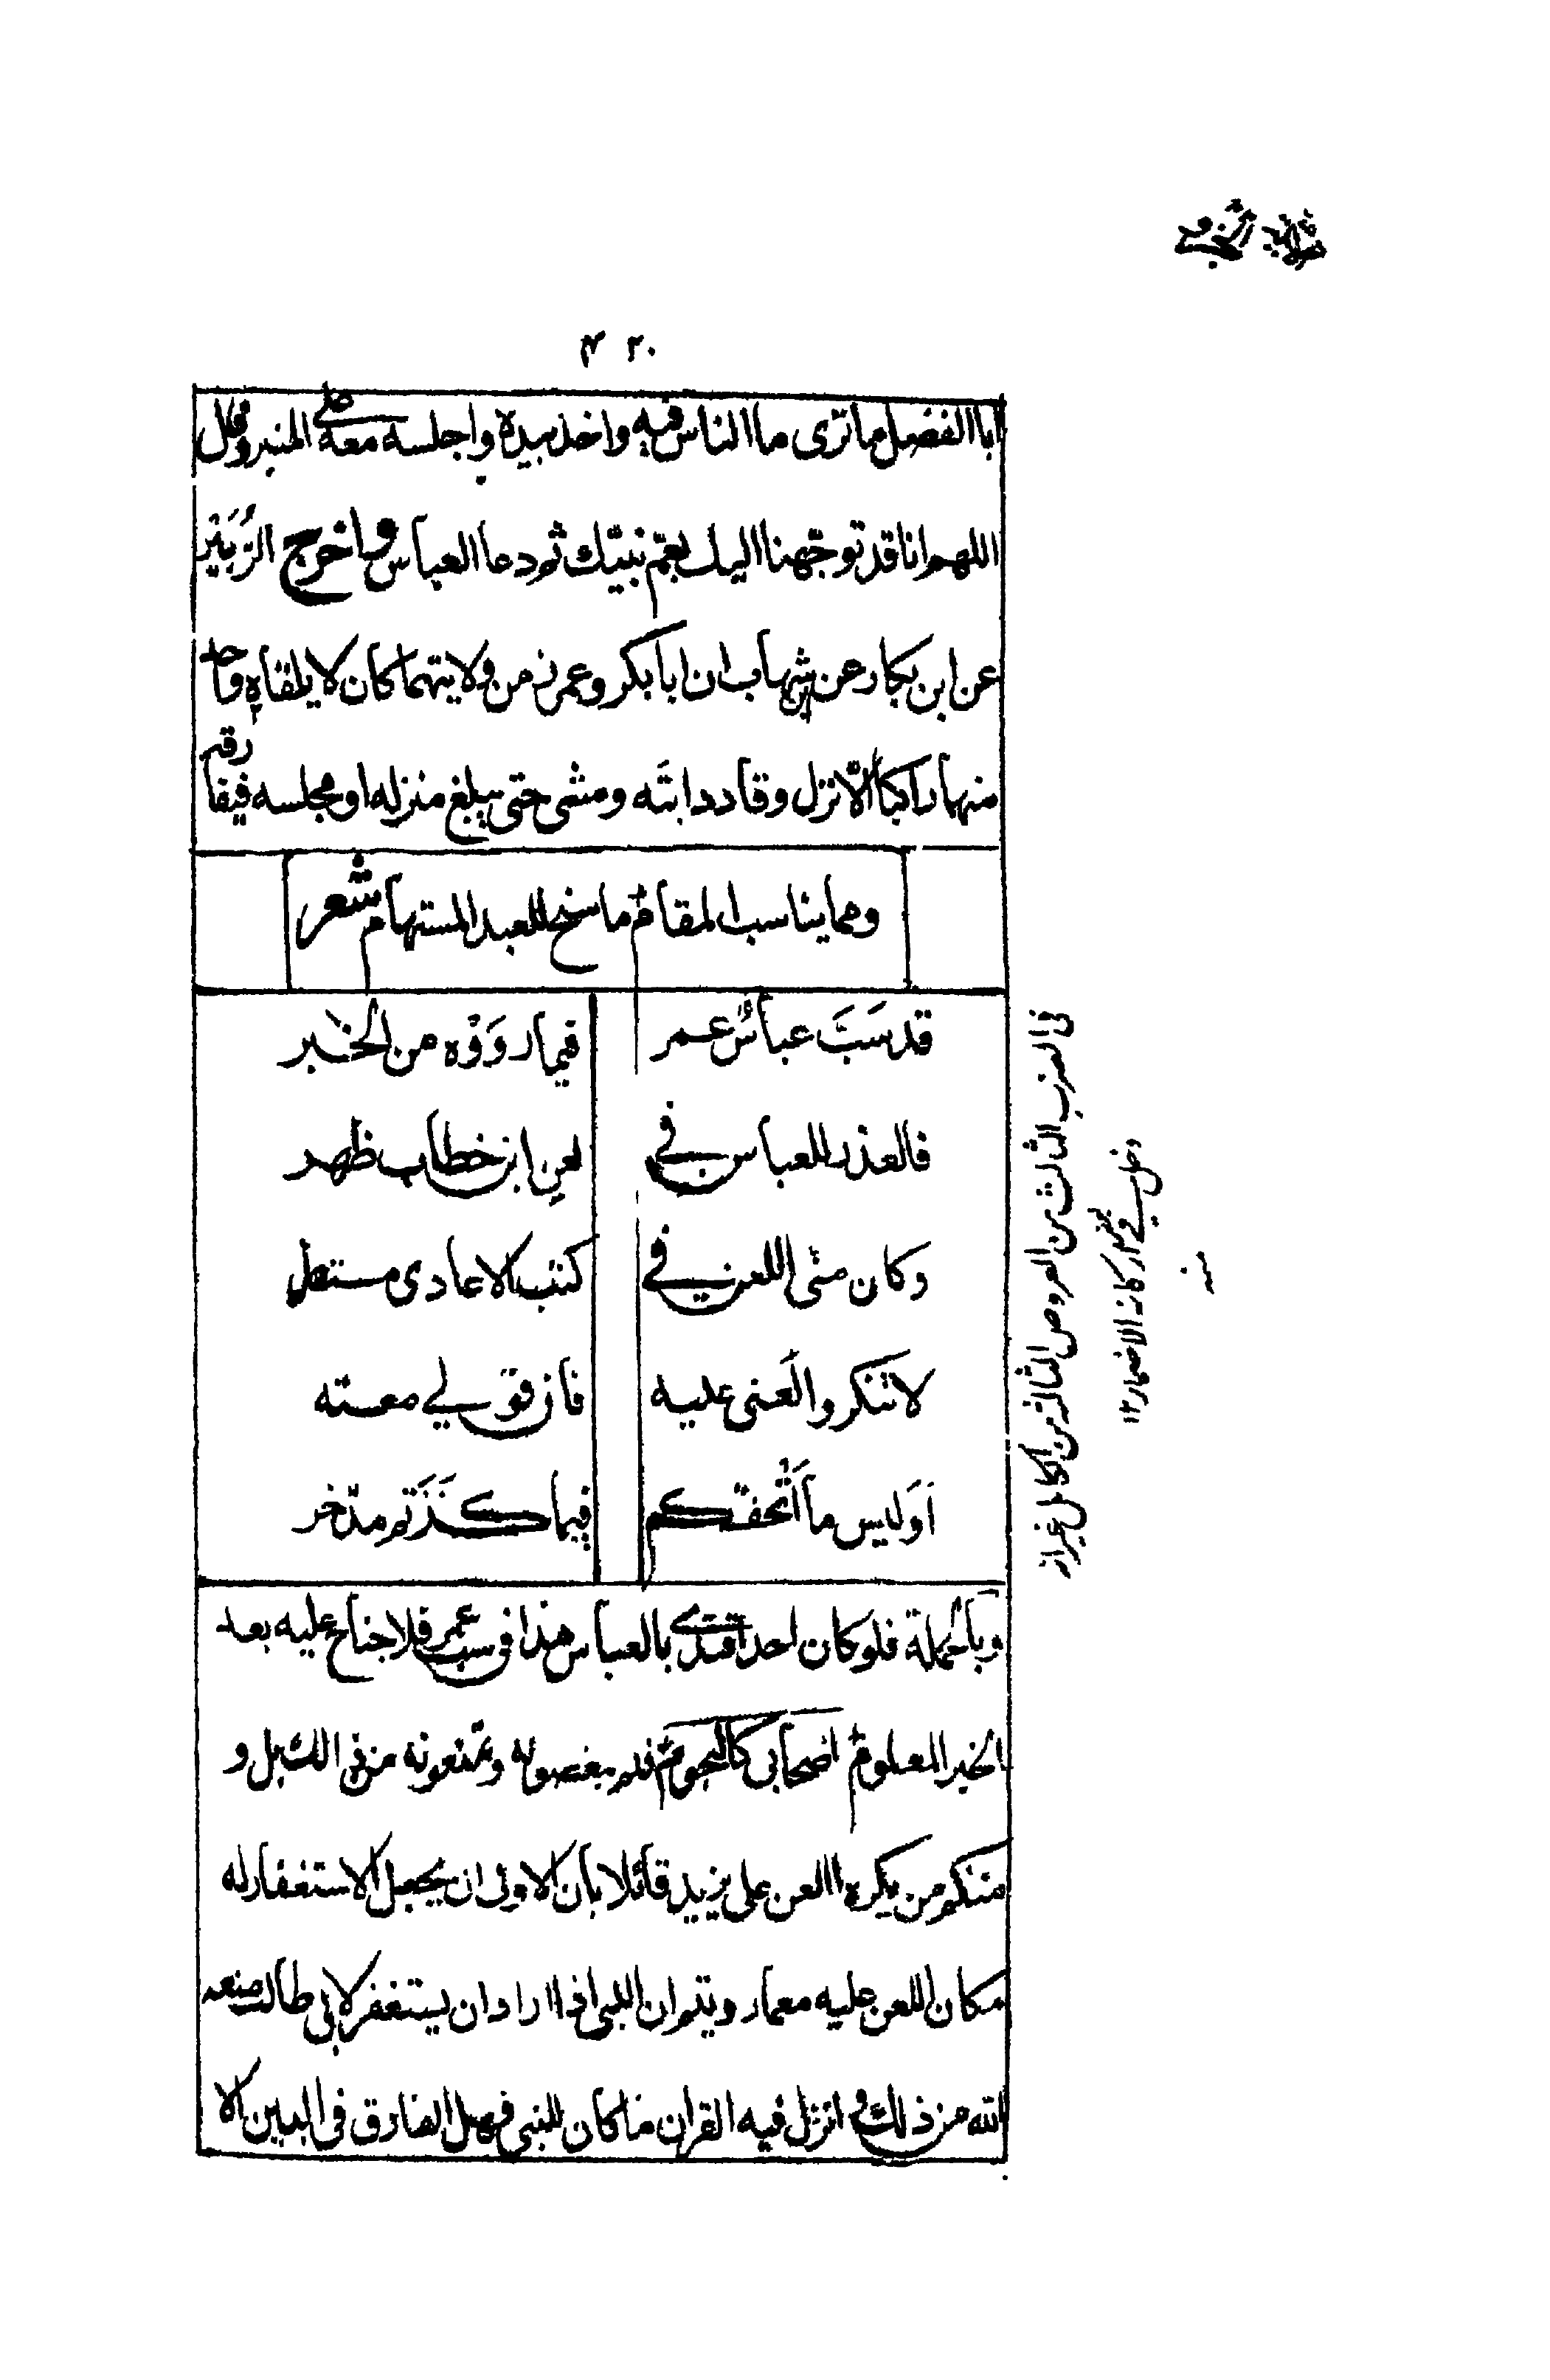 ٤٢٠
ابا الفضل ما ترى ما الناس فيه واخذ بيده واجلسه معه على المنبر وقال
اللهم انا قد توجّهنا اليك بعمّ نبيّك ثم دعا العباس واخرج الزُبَيْر
عن ابن بكار عن ابن شهاب ان ابا بكر وعمر في من ولايتهما كان لا يلقاه واحد
منهما راكباً الّا نزل وقاد دابتَه ومشى حتى يبلغ منزله او مجلسه فيفارقه
ومما يناسب المقام ما سنح للعبد المستهام شعر
قد سَبَّ عباسٌ عمر
فيما رَوَوْه من الخبر
فالعذر للعباس في
لعنِ ابن خطاب ظهر
وكان منّي اللعن في
كتب الاعادي مستطر
لا تنكروا لَعني عليه
فان قولي معتبر
اَوَليس ما اَتْحفتكم
فيما كنَزَتم مدّخر
وبالجملة فلو كان احد اقتدى بالعباس هذا في سب عمر فلا جناح عليه بعد
الخبر المعلوم اصحابي كالنجوم فلم يبغضونه وتمنعونه من في السّبل و
منكم من يكره اللعن على يزيد قائلا بان الاولى ان يجعل الاستغفار له
مكان اللعن عليه معمار ويتم ان النبي اذا اراد ان يستغفر لابي طالب منعه
الله من ذلك وانزل فيه القران ما كان للنبي فهل الفارق في البين الا
في العزب الثالث من العروض الثالثة من الكامل غير انه
دخل في بعض اركانه الاضمار ١٢
منه